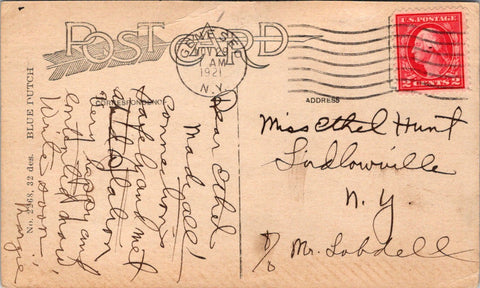 POST CARD
GENESEO
1 AM
1921
N.Y.
U.S. POSTAGE
2 CENTS 2
CORRESPONDENCE
ADDRESS
No. 2268, 32 des. BLUE DUTCH
Dear Ethel
Made all
connections
Hall and met
at station
very happy and
Write soon
Margie
Miss Ethel Hunt
Ludlowville
N. Y
c/o Mr. Lobdell